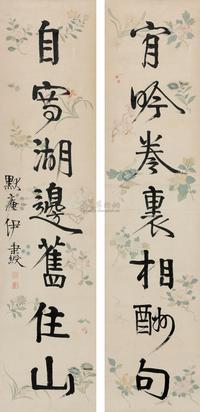 吟卷裏相酬句
自寫湖邊舊住山
默庵伊秉綬